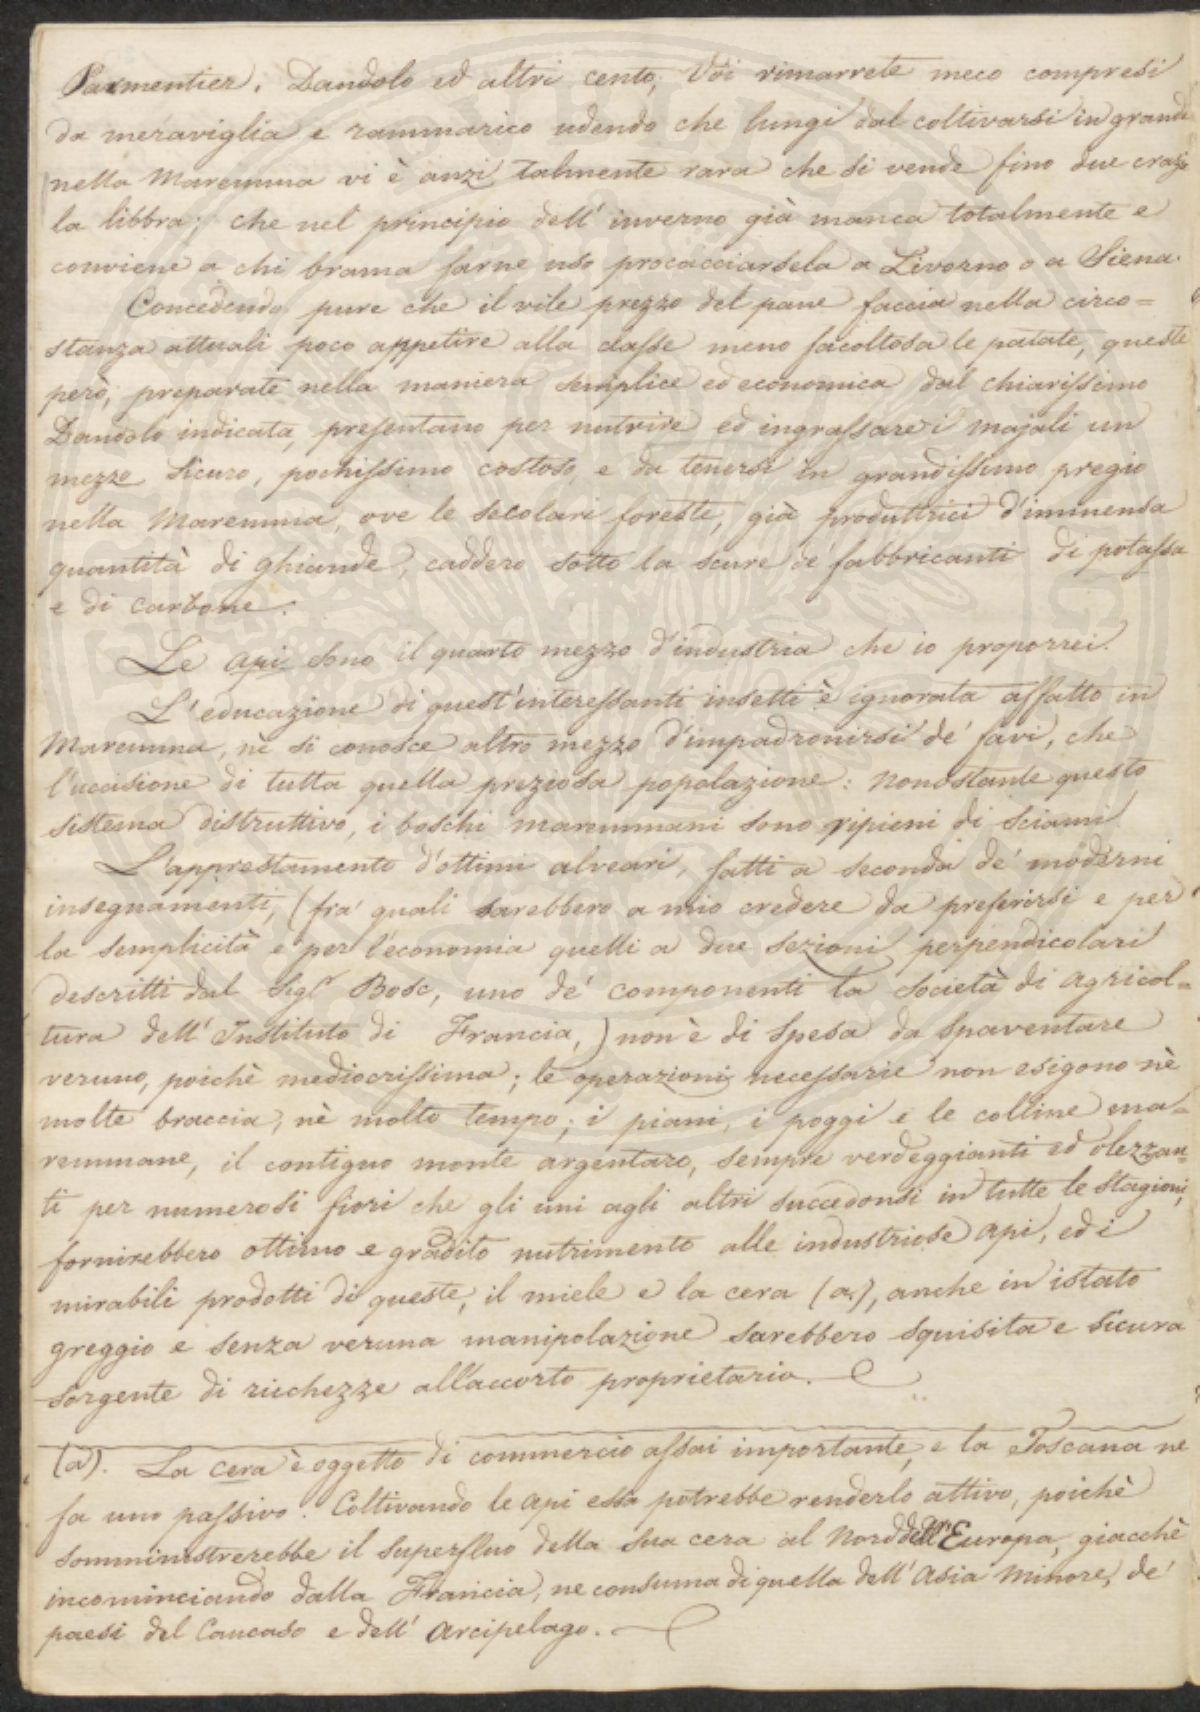 Parmentier, Dandolo ed altri cento, Voi rimarrete meco compresi
da meraviglia e rammarico udendo che lungi dal coltivarsi in grande
nella Maremma vi è anzi talmente rara che si vende fino due crazje
la libbra; che nel principio dell' inverno già manca totalmente e
conviene a chi brama farne uso procacciarsela a Livorno o a Siena.
Concedendo pure che il vile prezzo del pane faccia nella circo=
stanza attuali poco appetire alla classe meno facoltosa le patate, queste
però, preparate nella maniera semplice ed economica dal chiarissimo
Dandolo indicata, presentano per nutrire ed ingrassare i majali un
mezzo sicuro, pochissimo costoso, e da tenersi in grandissimo pregio
nella Maremma, ove le secolari foreste, già produttrici d'immensa
quantità di ghiande, caddero sotto la scure de' fabbricanti di potassa
e di carbone.
Le api sono il quarto mezzo d'industria che io proporrei.
L'educazione di quest'interessanti insetti è ignorata affatto in
Maremma, nè si conosce altro mezzo d'impadronirsi de' favi, che
l'uccisione di tutta quella preziosa popolazione: nonostante questo
sistema distruttivo, i boschi maremmani sono ripieni di sciami
L'apprestamento d'ottimi alveari, fatti a seconda de' moderni
insegnamenti, (fra' quali sarebbero a mio credere da preferirsi e per
la semplicità e per l'economia quelli a due sezioni perpendicolari
descritti dal Sigr Bosc, uno de' componenti la società di agricol=
tura dell' Instituto di Francia,) non è di spesa da spaventare
veruno, poichè mediocrissima; le operazioni necessarie non esigono nè
molte braccia, nè molto tempo; i piani, i poggi e le colline ma=
remmane, il contiguo monte argentaro, sempre verdeggianti ed olezzan=
ti per numerosi fiori che gli uni agli altri succedonsi in tutte le stagioni,
fornirebbero ottimo e gradito nutrimento alle industriose api, ed i
mirabili prodotti di queste, il miele e la cera (a), anche in istato
greggio e senza veruna manipolazione sarebbero squisita e sicura
sorgente di ricchezze all'accorto proprietario.
(a). La cera è oggetto di commercio assai importante, e la Toscana ne
fa uno passivo. Coltivando le api essa potrebbe renderlo attivo, poichè
somministrerebbe il superfluo della sua cera al Nord dell'Europa, giacchè
incominciando dalla Francia, ne consuma di quella dell' Asia Minore, de'
paesi del Caucaso e dell' Arcipelago.